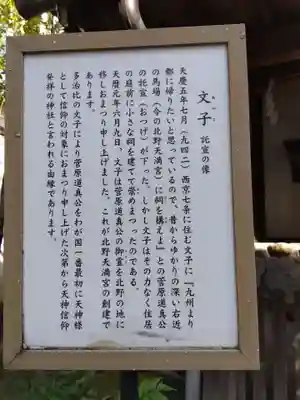 文子 託宣の像
天慶五年七月(九四二)西京七条に住む文子に『九州より
都に帰りたいと思っているので、昔からゆかりの深い右近
の馬場(今の北野天満宮)に祠を構えよ』との菅原道真公
の託宣(おつげ)が下った。しかし文子はその力なく住居
の庭前に小さな祠を建てて崇めまつったのである。
天暦元年六月九日、文子は菅原道真公の御霊を北野の地に
移しおまつり申し上げました。これが北野天満宮の創建で
あります。
多治比の文子により菅原道真公をわが国一番最初に天神様
として信仰の対象におまつり申し上げた次第から天神信仰
発祥の神社と言われる由縁であります。